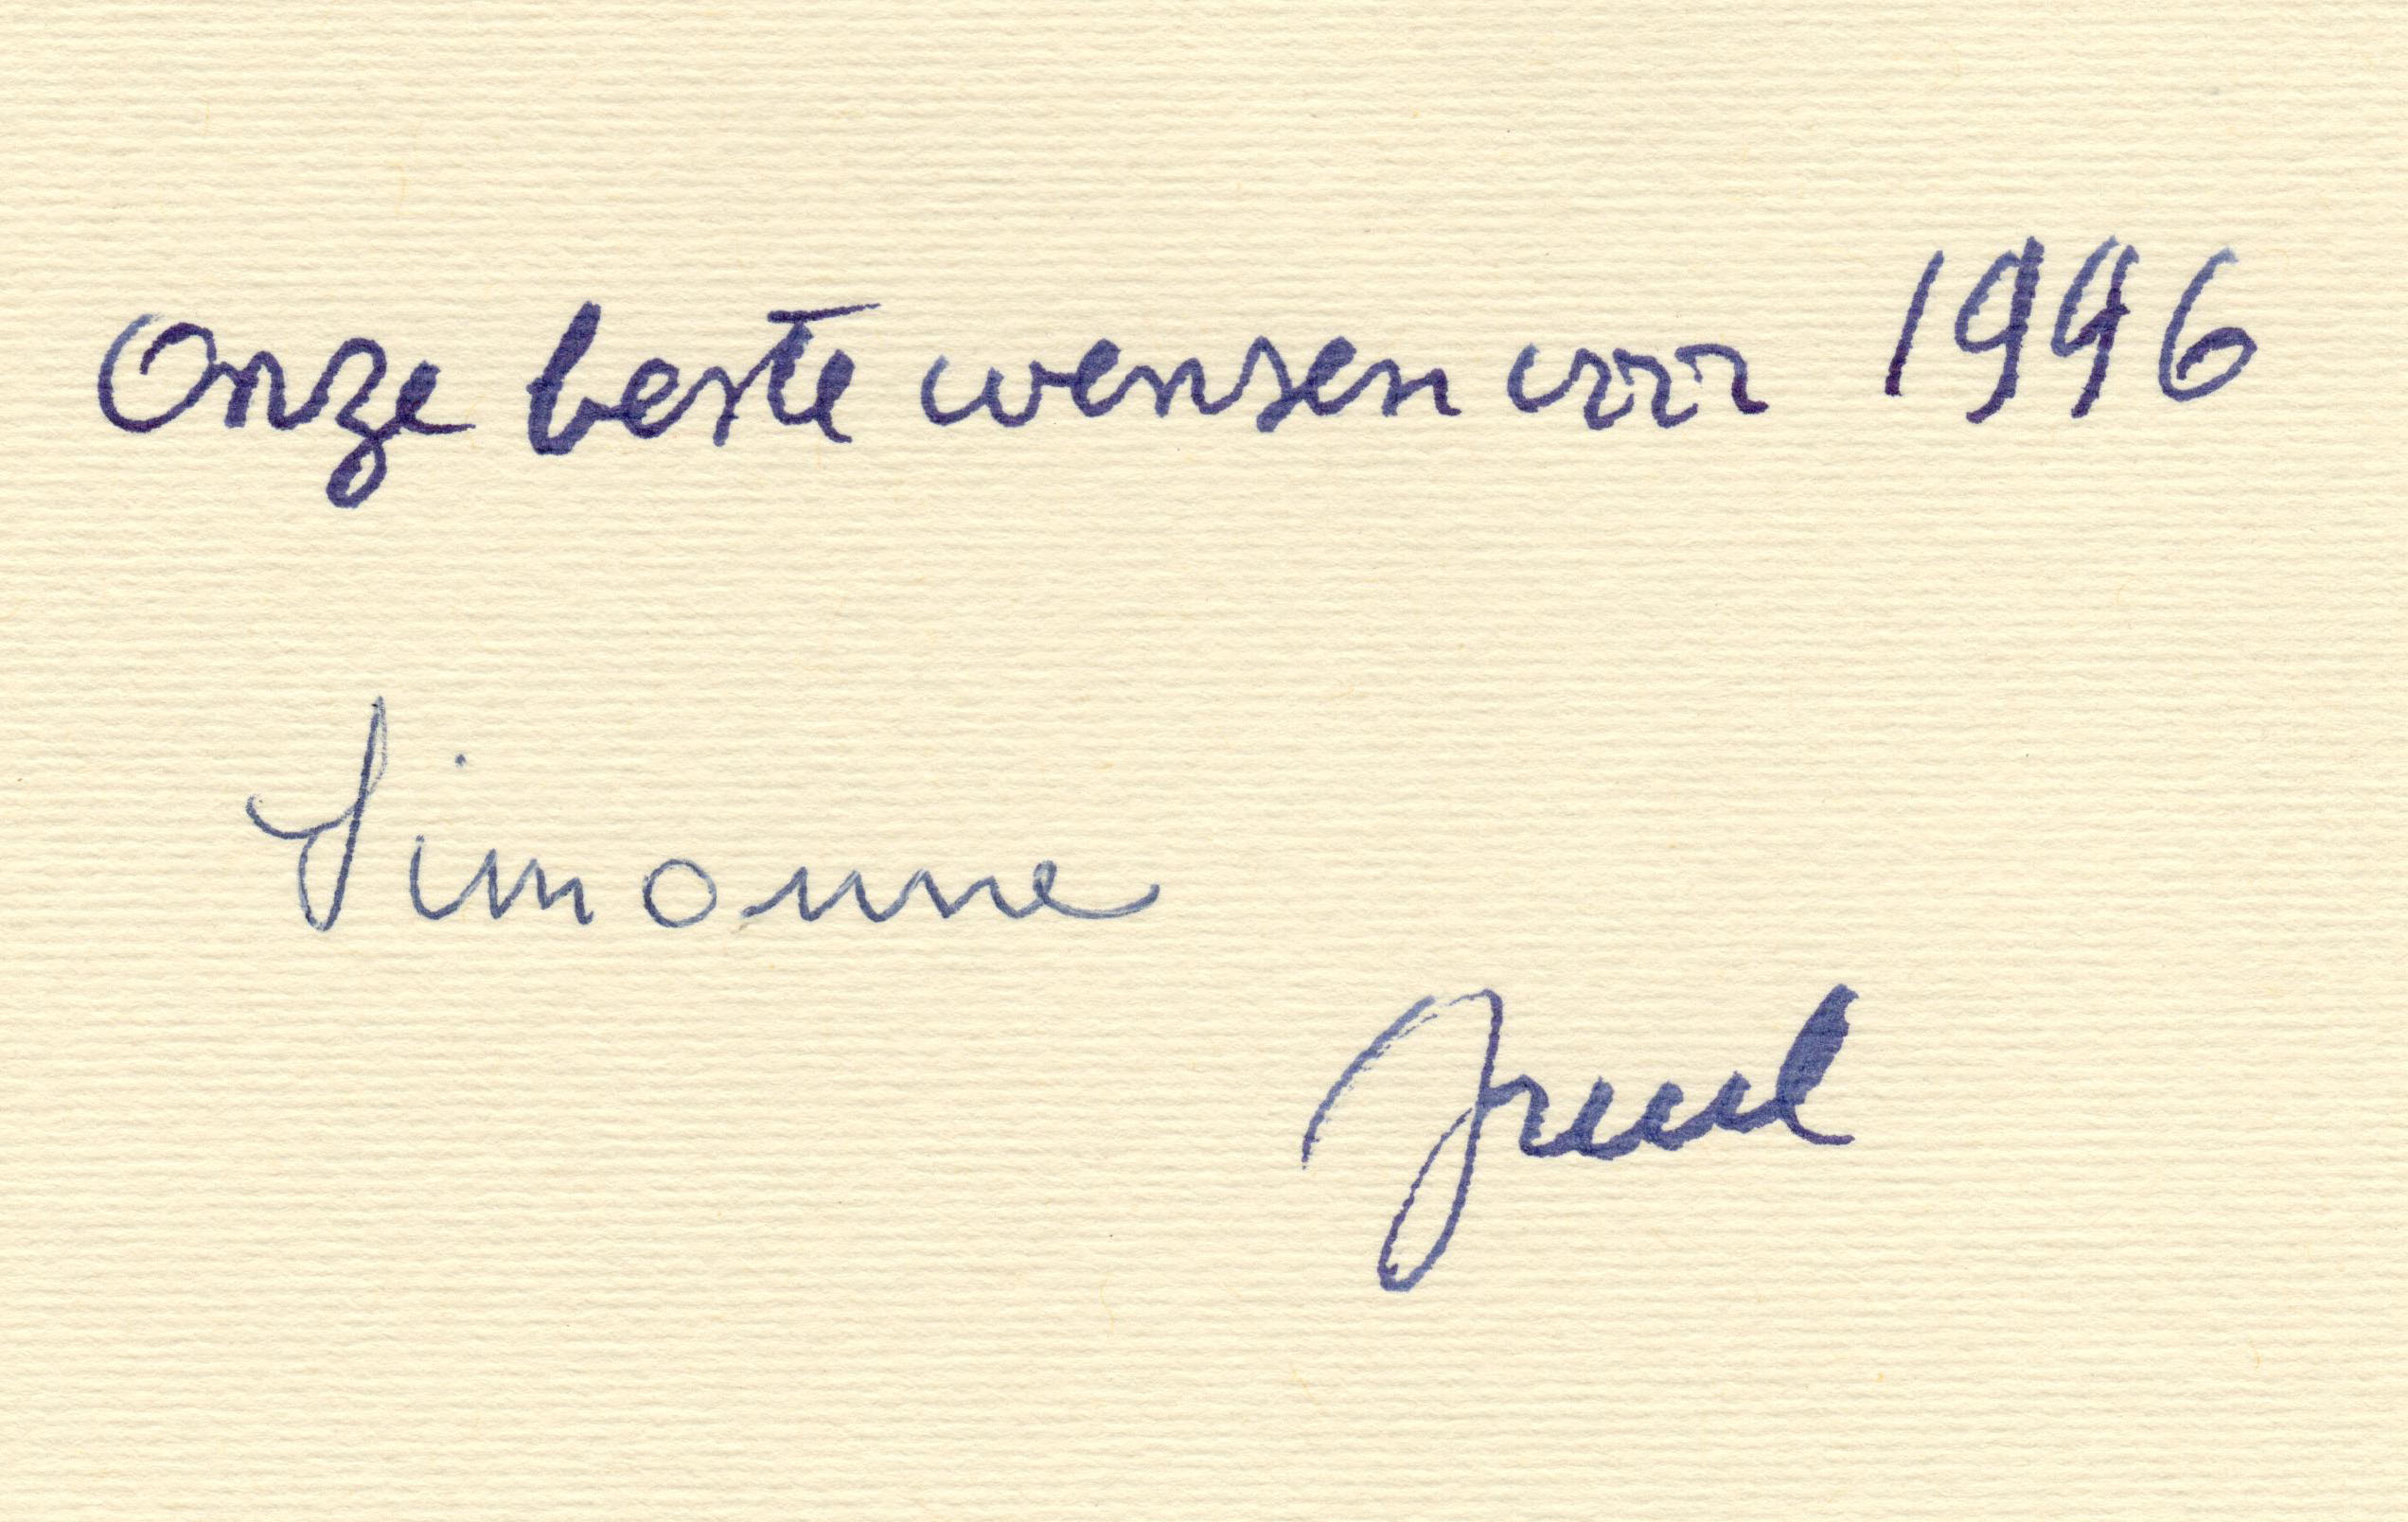 Onze beste wensen voor 1996
Simonne
Juul